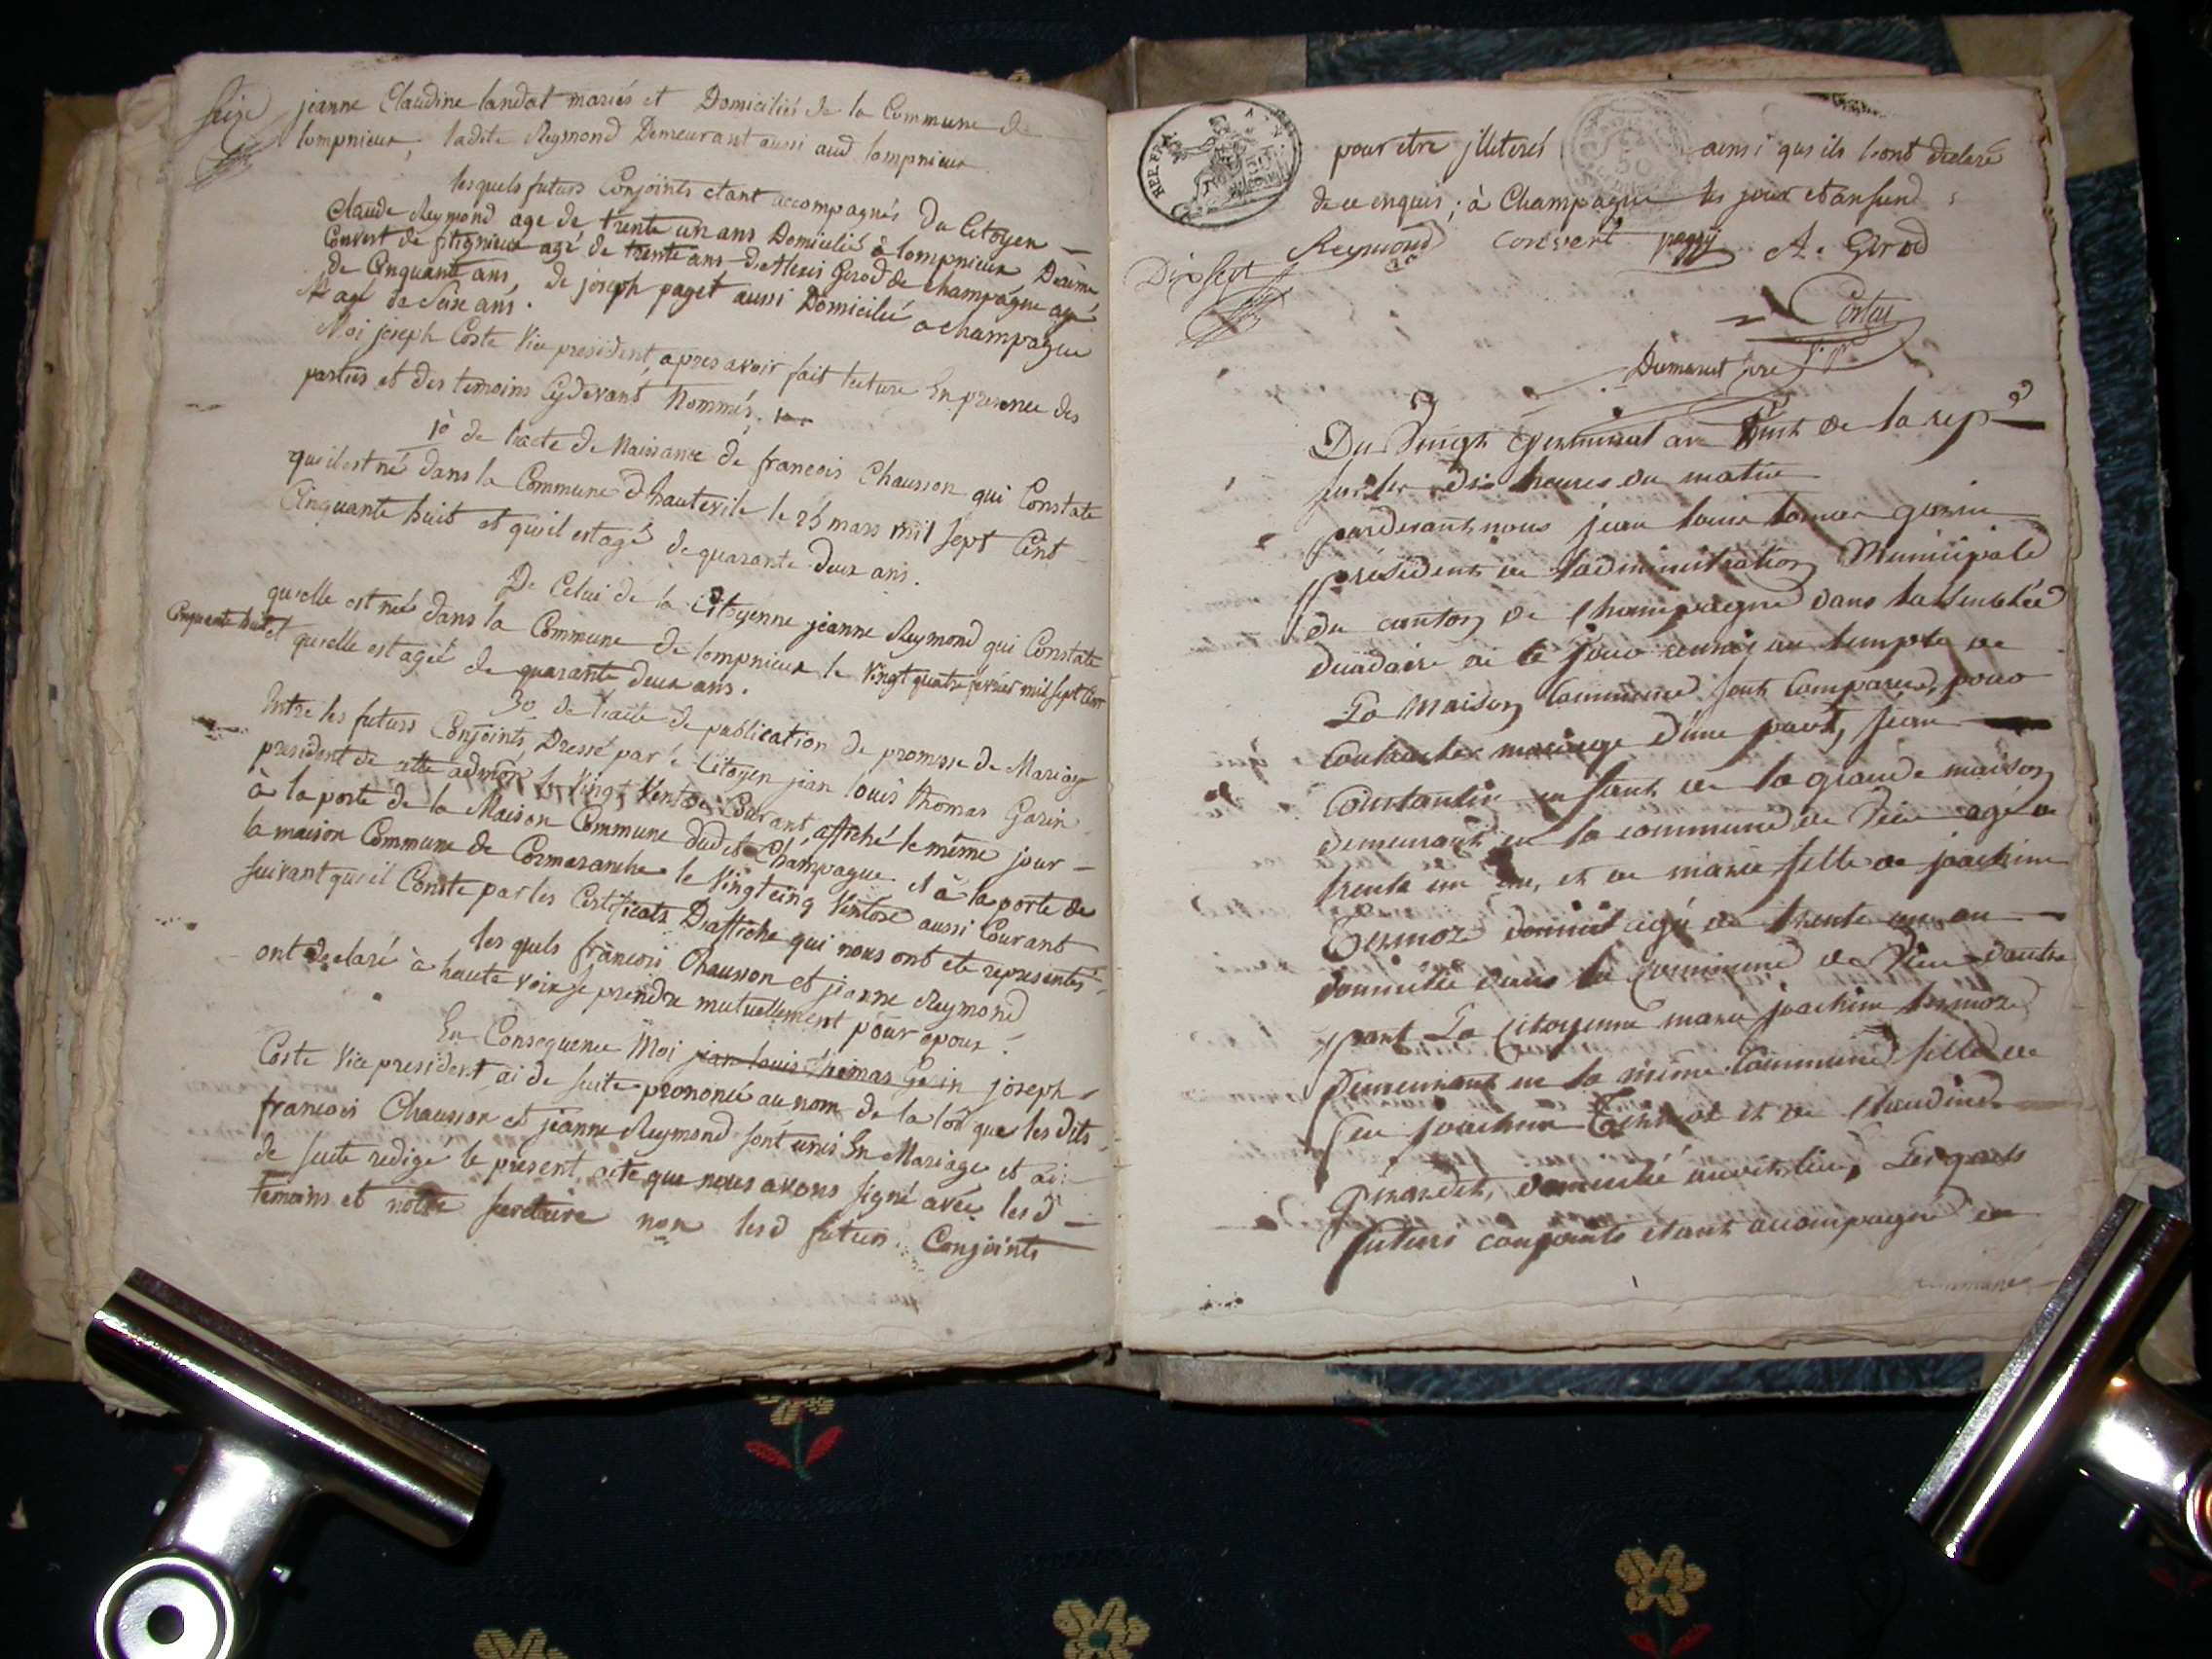 seize
jeanne Claudine landat mariés et Domiciliés de la Commune de
lompnieux, ladite Reymond Demeurant aussi aud lompnieux
lesquels futurs Conjoints etant accompagnés Du Citoyen
Claude Reymond age de trente un ans Domicilié à lompnieux
Convert de age de trente ans d'Alexis Gerod de champagne agé
de Cinquante ans, de joseph paget aussi Domicilié a champagne
agé de Seise ans.
Moi joseph Coste Vice president, apres avoir fait lecture En presence des
parties et des temoins Cydevant Nommés,
1o de l'acte de Naissance de francois Chausson qui Constate
qu'il est né dans la Commune d'hautevile le 25 mars mil sept Cent
Cinquante huit et qu'il est agé de quarante Deux ans.
De Celui de la Citoyenne jeanne Reymond qui Constate
qu'elle est née dans la Commune de lompnieux le Vingt quatre fevrier mil sept Cent
Cinquante huit et qu'elle est agée de quarante deux ans.
3o de l'acte de publication de promesse de Mariage
Entre les futurs Conjoints, Dressé par le Citoyen jean louis thomas Garin
president de cette admon le Vingt Ventose Courant affiché le même jour
à la porte de la Maison Commune dud et Champagne et à la porte de
la maison Commune de Cormaranche le Vingt cinq Ventose aussi Courant
suivant qu'il Conste par les Certificats D'affiche qui nous ont ete representés
les quels francois Chausson et jeanne Reymond
ont declaré à haute voix se prendre mutuellement pour epoux.
En Consequence Moi jean louis thomas Garin joseph
Coste Vice president ai de suite prononcé au nom de la loi que les dits
francois Chausson et jeanne Reymond sont unis En Mariage et ai
de suite redigé le present acte que nous avons signé avec les d
temoins et notre secretaire non lesd futurs Conjoints
REP. FRA.
pour etre jlleterés ainsi qu'ils l'ont declaré
de ce enquis; à Champagne les jour et an susd
Dix sept
Reymond Convert pagej A. Girod
Du Vingt germinal an huit de la rep
sur les dix heures du matin
pardevant nous jean louis tomas garin
president de l'administration Municipale
du canton de Champagne dans
decadaire de ce jour au temple de
La Maison Commune sont Comparus, pour
Contracter mariage d'une part, jean
Constantin enfant de la grande maison
demeurant en la commune de agé de
trente un an, et de marie fille de joachim
agé de trente un an
domicilié dans la Commune de d'autre
part La Citoyenne marie joachim
demeurant en la même Commune fille de
feu joachim et de Claudine
domicilié audit lieu, Lesquels
futurs conjoints etant accompagné du